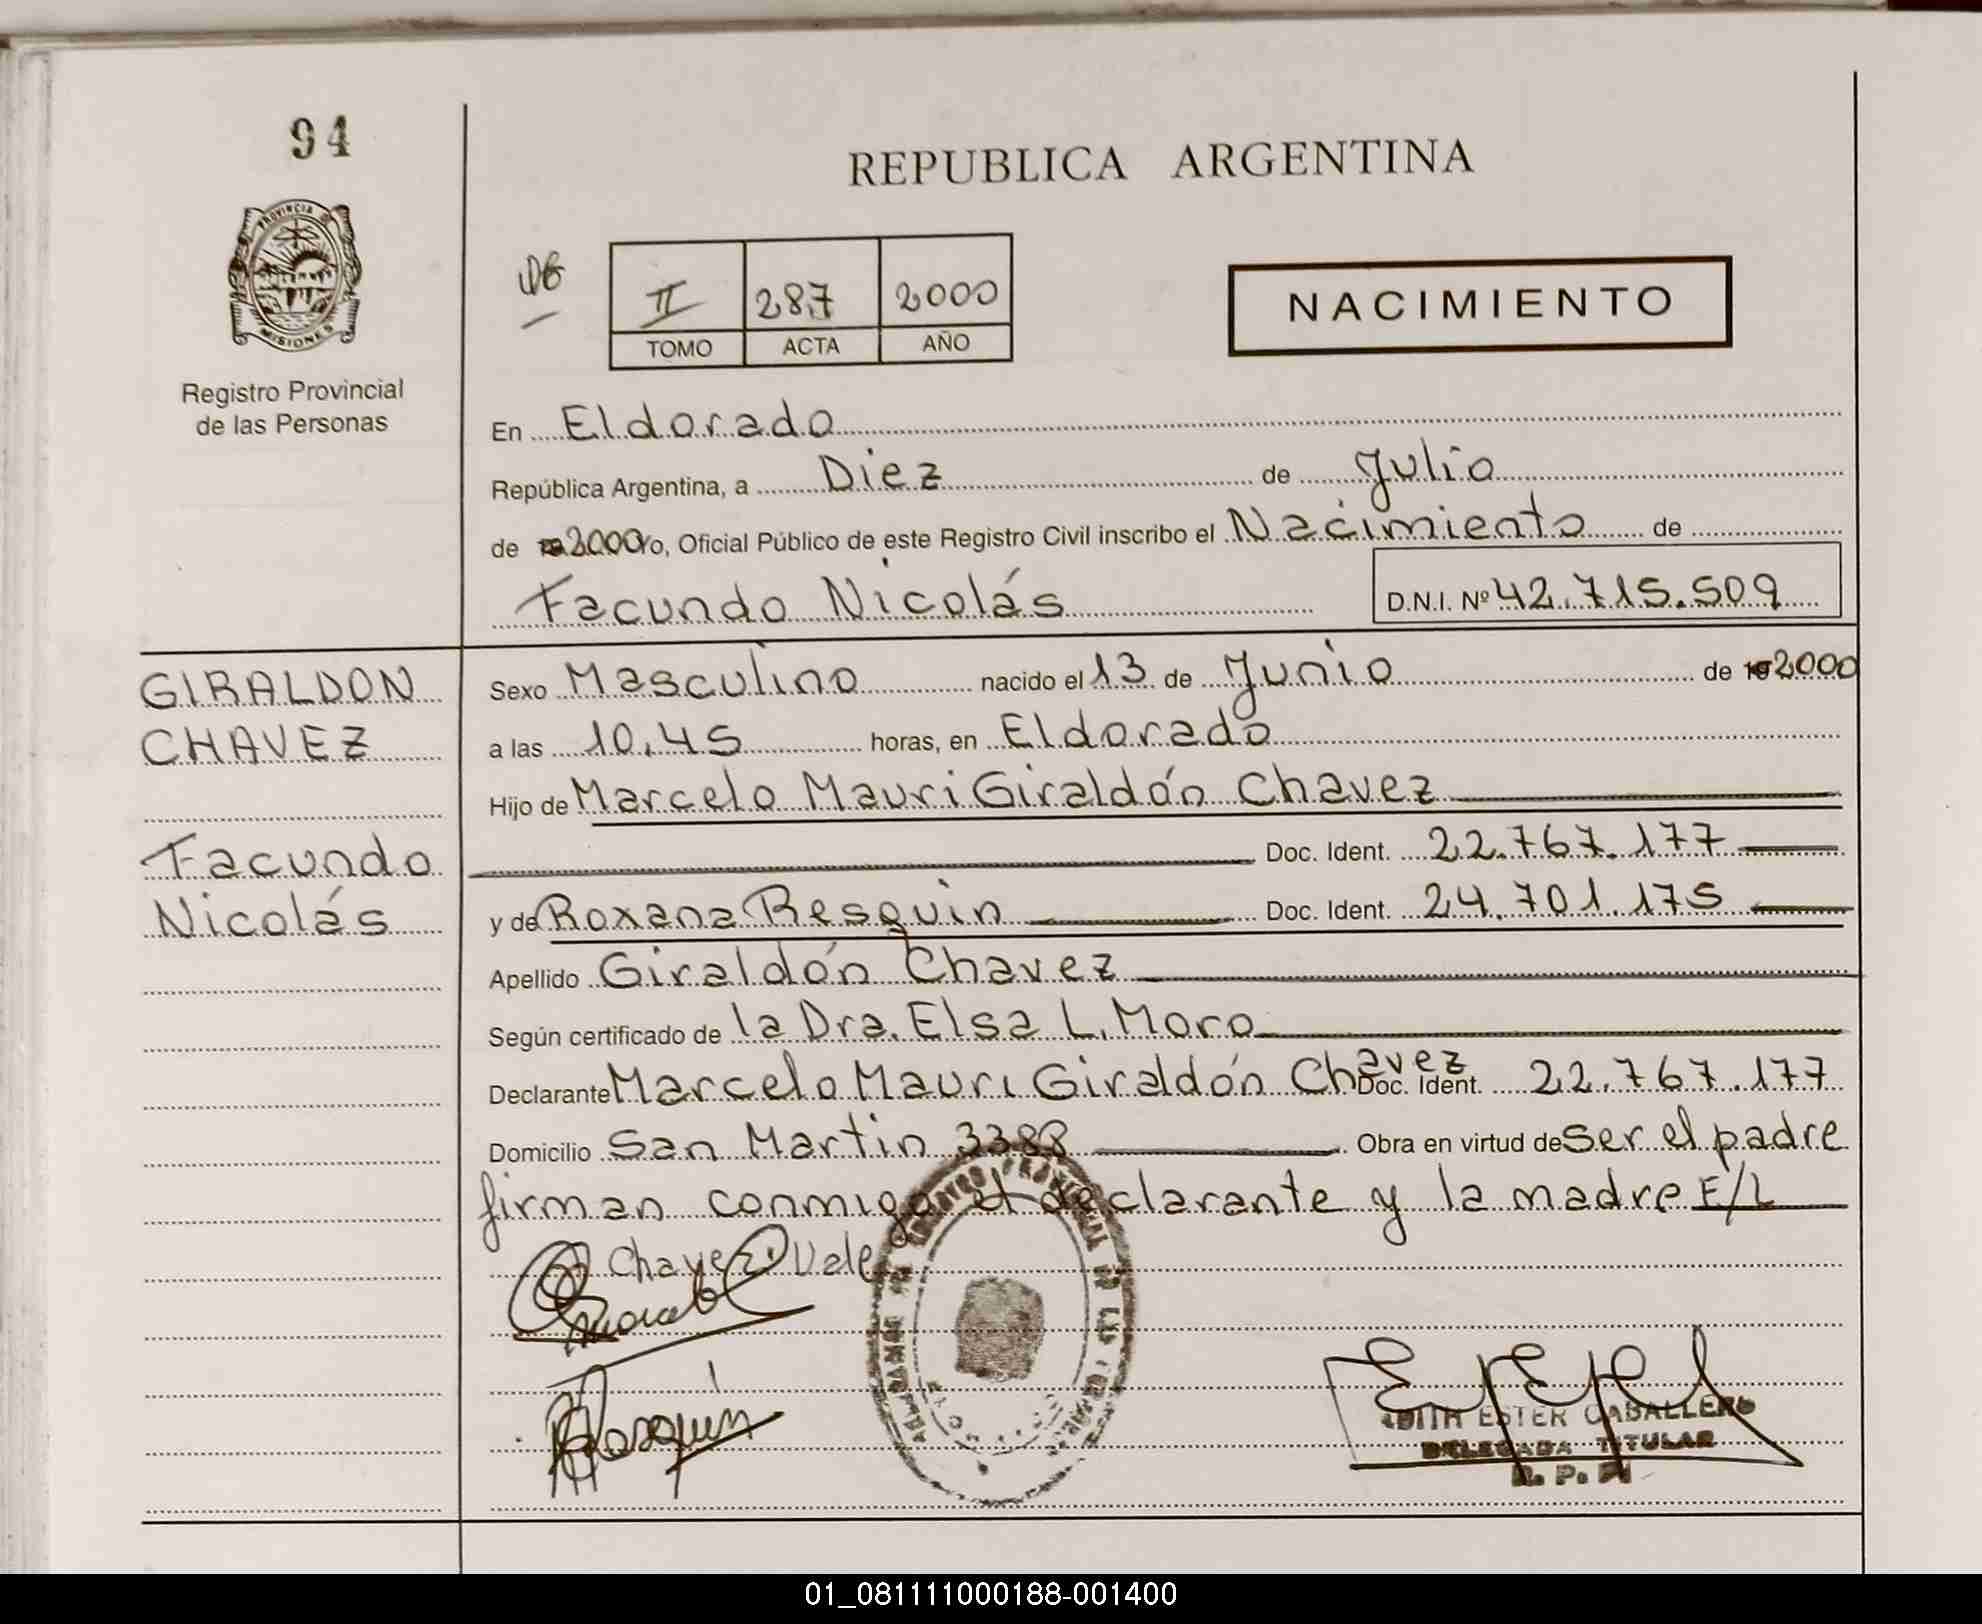 94
REPUBLICA ARGENTINA
PROVINCIA DE
MISIONES
Registro Provincial
de las Personas
II 287 2000
TOMO ACTA AÑO
NACIMIENTO
En Eldorado
República Argentina, a Diez de Julio
de 2000 yo, Oficial Público de este Registro Civil inscribo el Nacimiento de
Facundo Nicolás D.N.I. Nº 42.715.509
GIRALDON
CHAVEZ
Facundo
Nicolás
Sexo Masculino nacido el 13 de Junio de 192000
a las 10,45 horas, en Eldorado
Hijo de Marcelo Mauri Giraldón Chavez
Doc. Ident. 22.767.177
y de Roxana Resquin Doc. Ident. 24.701.175
Apellido Giraldón Chavez
Según certificado de la Dra. Elsa L. Moro
Declarante Marcelo Mauri Giraldón Chavez Doc. Ident. 22.767.177
Domicilio San Martin 3388 Obra en virtud de ser el padre
firman conmigo el declarante y la madre E/L
Chavez Vale
EDITH ESTER CABALLERO
DELEGADA TITULAR
R. P. P.
01_081111000188-001400